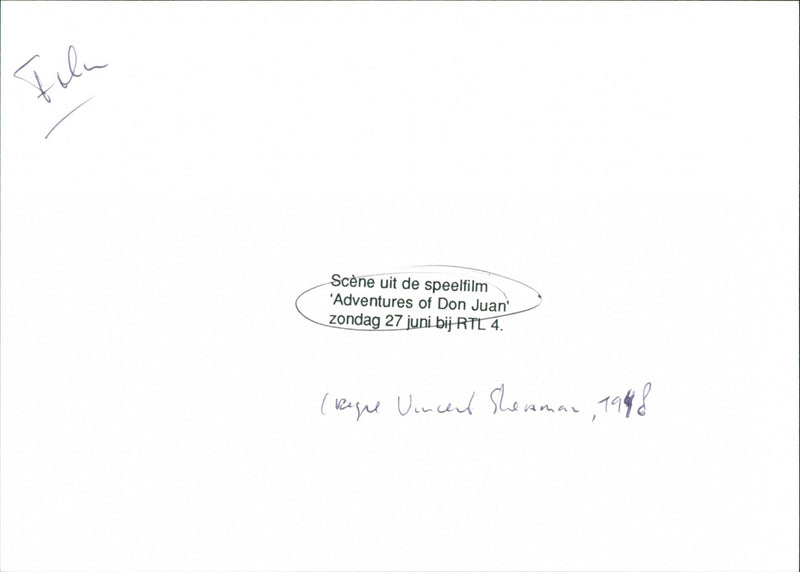 Film
Scène uit de speelfilm
'Adventures of Don Juan'
zondag 27 juni bij RTL 4.
(regie Vincent Sherman, 1948